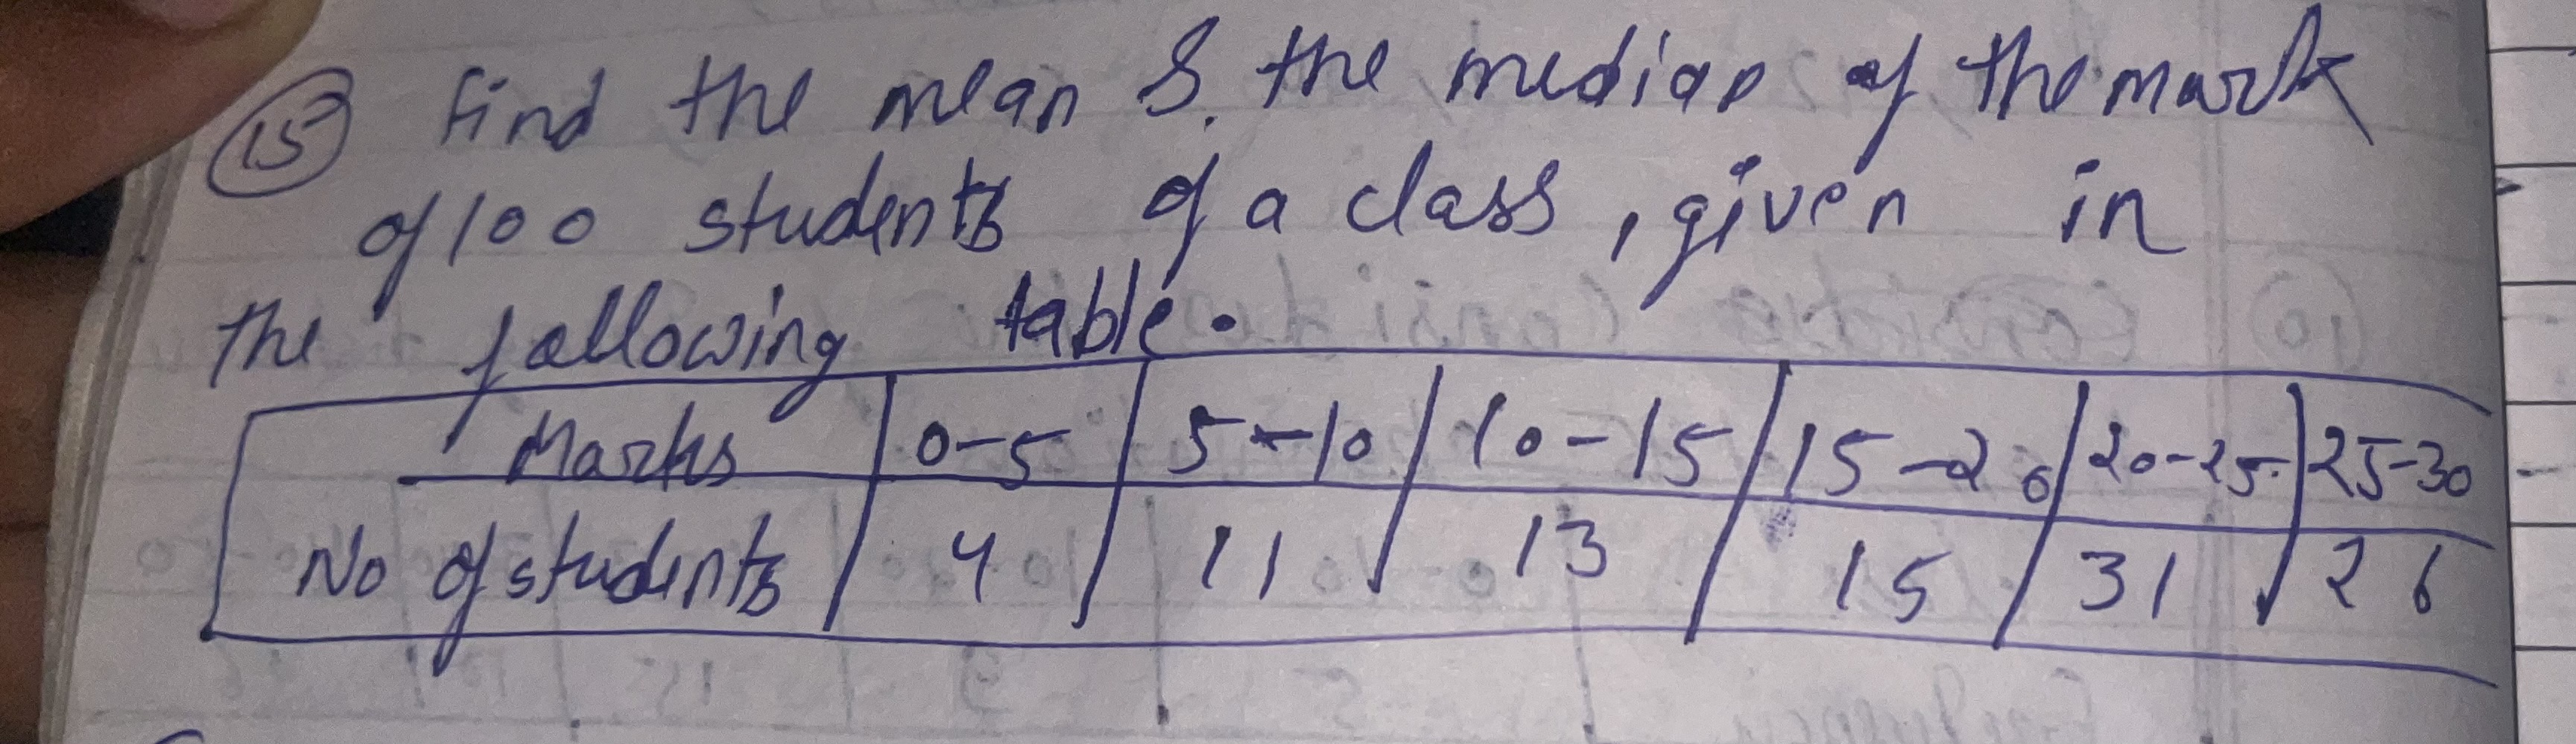 15 Find the mean & the median of the mark
of 100 students of a class, given in
the following table.
Marks 0-5 5-10 10-15 15-20 20-25 25-30
No of students 4 11 13 15 31 26